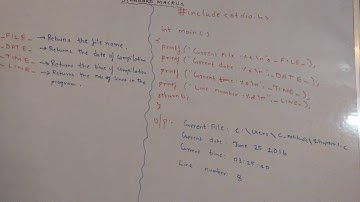 STANDARD MACROS
_FILE_ → Returns the file name.
_DATE_ → Returns the date of compilation
_TIME_ → Returns the time of compilation
_LINE_ → Returns the no. of lines in the program.
#include<stdio.h>
int main()
{
printf("Current File :%s\n",_FILE_);
printf("Current date :%s\n",_DATE_);
printf("Current time :%s\n",_TIME_);
printf("Line number :%d\n",_LINE_);
return 0;
}
O/P:-
Current File: C:\Users\
Current date: June 25 2016
Current time: 03:25:20
Line number: 8